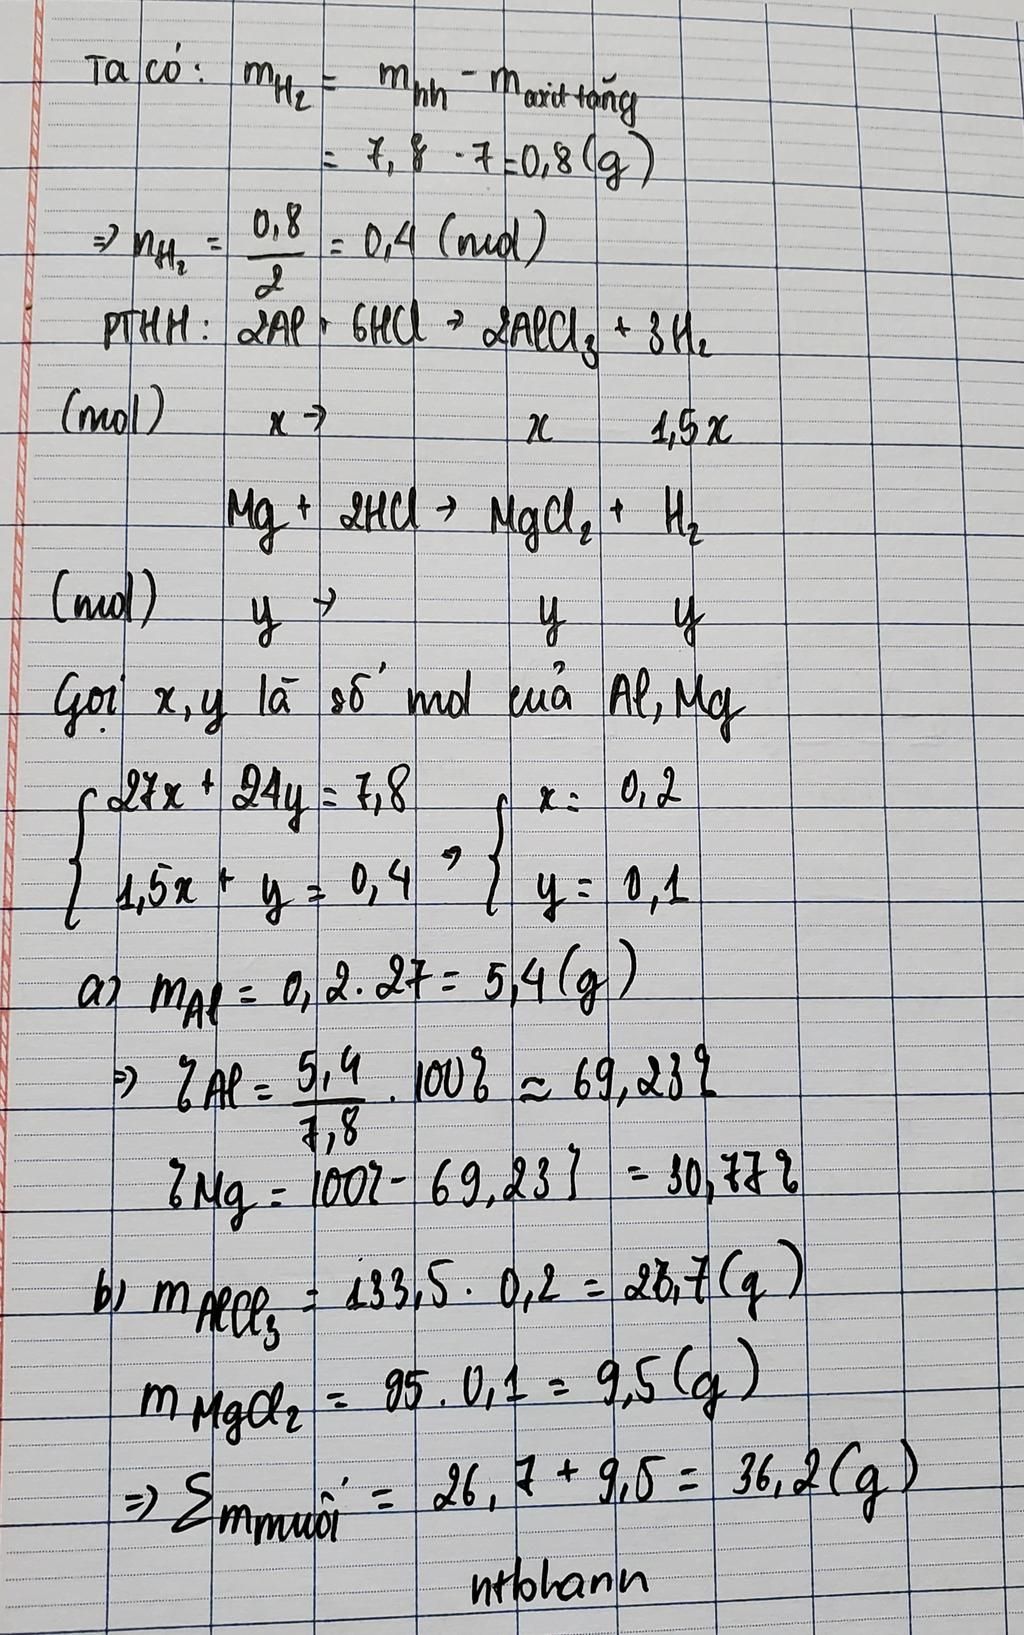 Ta có: m_H₂ = m_hh - m_axit tăng
= 7,8 - 7 = 0,8 (g)
=> n_H₂ = 0,8/2 = 0,4 (mol)
PTHH: 2Al + 6HCl → 2AlCl₃ + 3H₂
(mol) x → x 1,5x
Mg + 2HCl → MgCl₂ + H₂
(mol) y → y y
Gọi x, y là số mol của Al, Mg
{ 27x + 24y = 7,8 { x = 0,2
{ 1,5x + y = 0,4 → { y = 0,1
a) m_Al = 0,2 . 27 = 5,4 (g)
=> %Al = 5,4/7,8 . 100% ≈ 69,23%
%Mg = 100% - 69,23% = 30,77%
b) m_AlCl₃ = 133,5 . 0,2 = 26,7 (g)
m_MgCl₂ = 95 . 0,1 = 9,5 (g)
=> Σm_muối = 26,7 + 9,5 = 36,2 (g)